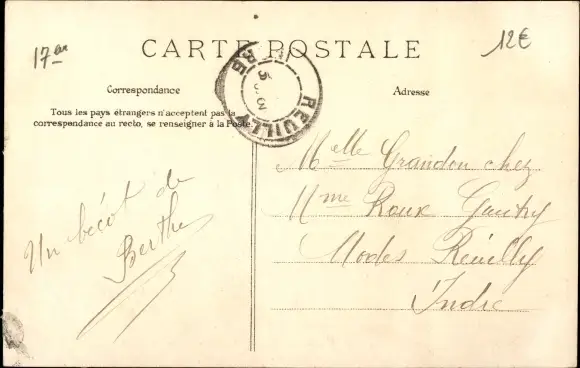 17ar
12€
CARTE POSTALE
Correspondance
Adresse
Tous les pays étrangers n'acceptent pas la
correspondance au recto, se renseigner à la Poste.
REUILLY
Un bécot de
Berthe
Melle Grandon chez
Mme Roux Gautry
Modes Reuilly
Indre